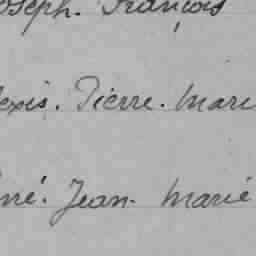 oseph. François
exis. Pierre. Mari
né. Jean. Marie